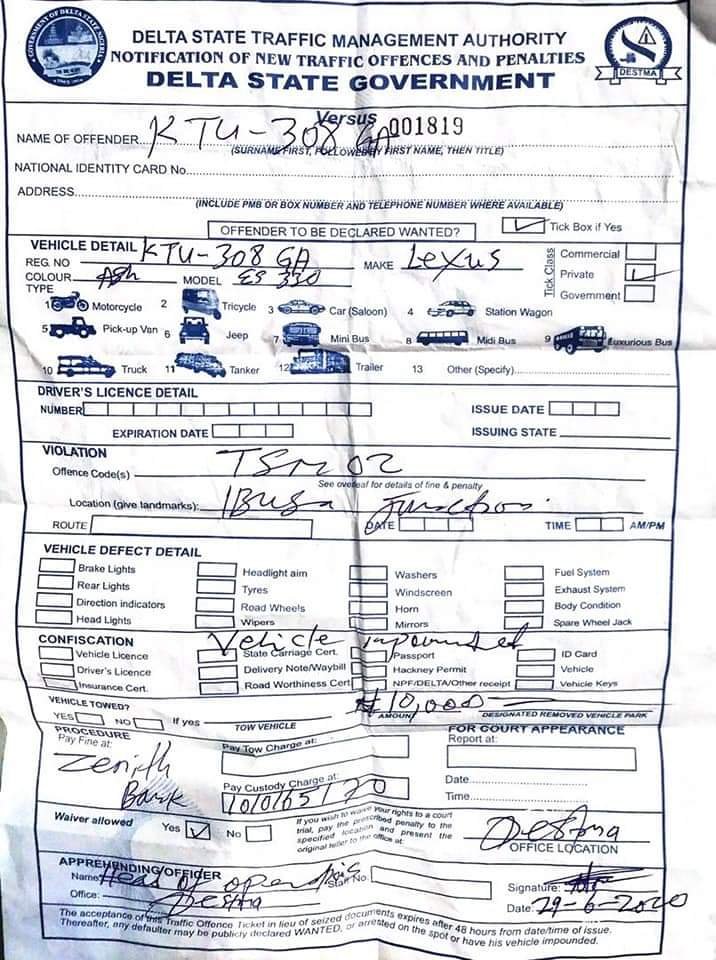 GOVERNMENT OF DELTA STATE NIGERIA
DELTA STATE TRAFFIC MANAGEMENT AUTHORITY
NOTIFICATION OF NEW TRAFFIC OFFENCES AND PENALTIES
DELTA STATE GOVERNMENT
DESTMA
Versus
001819
NAME OF OFFENDER KTU-308 GA
(SURNAME FIRST, FOLLOWED BY FIRST NAME, THEN TITLE)
NATIONAL IDENTITY CARD No.
ADDRESS
(INCLUDE PMB OR BOX NUMBER AND TELEPHONE NUMBER WHERE AVAILABLE)
OFFENDER TO BE DECLARED WANTED? Tick Box if Yes
VEHICLE DETAIL
REG. NO KTU-308 GA MAKE Lexus
COLOUR Ash MODEL ES 330
Tick Class
Commercial
Private
Government
TYPE
1 Motorcycle 2 Tricycle 3 Car (Saloon) 4 Station Wagon
5 Pick-up Van 6 Jeep 7 Mini Bus 8 Midi Bus 9 Luxurious Bus
10 Truck 11 Tanker 12 Trailer 13 Other (Specify)
DRIVER'S LICENCE DETAIL
NUMBER ISSUE DATE
EXPIRATION DATE ISSUING STATE
VIOLATION
Offence Code(s) TSM 02
See overleaf for details of fine & penalty
Location (give landmarks): IBUSA Junction.
ROUTE DATE TIME AM/PM
VEHICLE DEFECT DETAIL
Brake Lights Headlight aim Washers Fuel System
Rear Lights Tyres Windscreen Exhaust System
Direction indicators Road Wheels Horn Body Condition
Head Lights Wipers Mirrors Spare Wheel Jack
CONFISCATION Vehicle impounded
Vehicle Licence State Carriage Cert. Passport ID Card
Driver's Licence Delivery Note/Waybill Hackney Permit Vehicle
Insurance Cert. Road Worthiness Cert NPF/DELTA/Other receipt Vehicle Keys
VEHICLE TOWED? ₦10,000
YES NO If yes TOW VEHICLE AMOUNT DESIGNATED REMOVED VEHICLE PARK
PROCEDURE
Pay Fine at: Zenith Bank
Pay Tow Charge at:
FOR COURT APPEARANCE
Report at:
Pay Custody Charge at:
Date
Time
Waiver allowed Yes No
If you wish to waive your rights to a court trial, pay the prescribed penalty to the specified location and present the original teller to the office at:
Destma
OFFICE LOCATION
APPREHENDING/OFFICER
Name: Head of
Staff No.
Signature:
Office: Destma
Date: 29-6-2020
The acceptance of this Traffic Offence Ticket in lieu of seized documents expires after 48 hours from date/time of issue.
Thereafter, any defaulter may be publicly declared WANTED, or arrested on the spot or have his vehicle impounded.